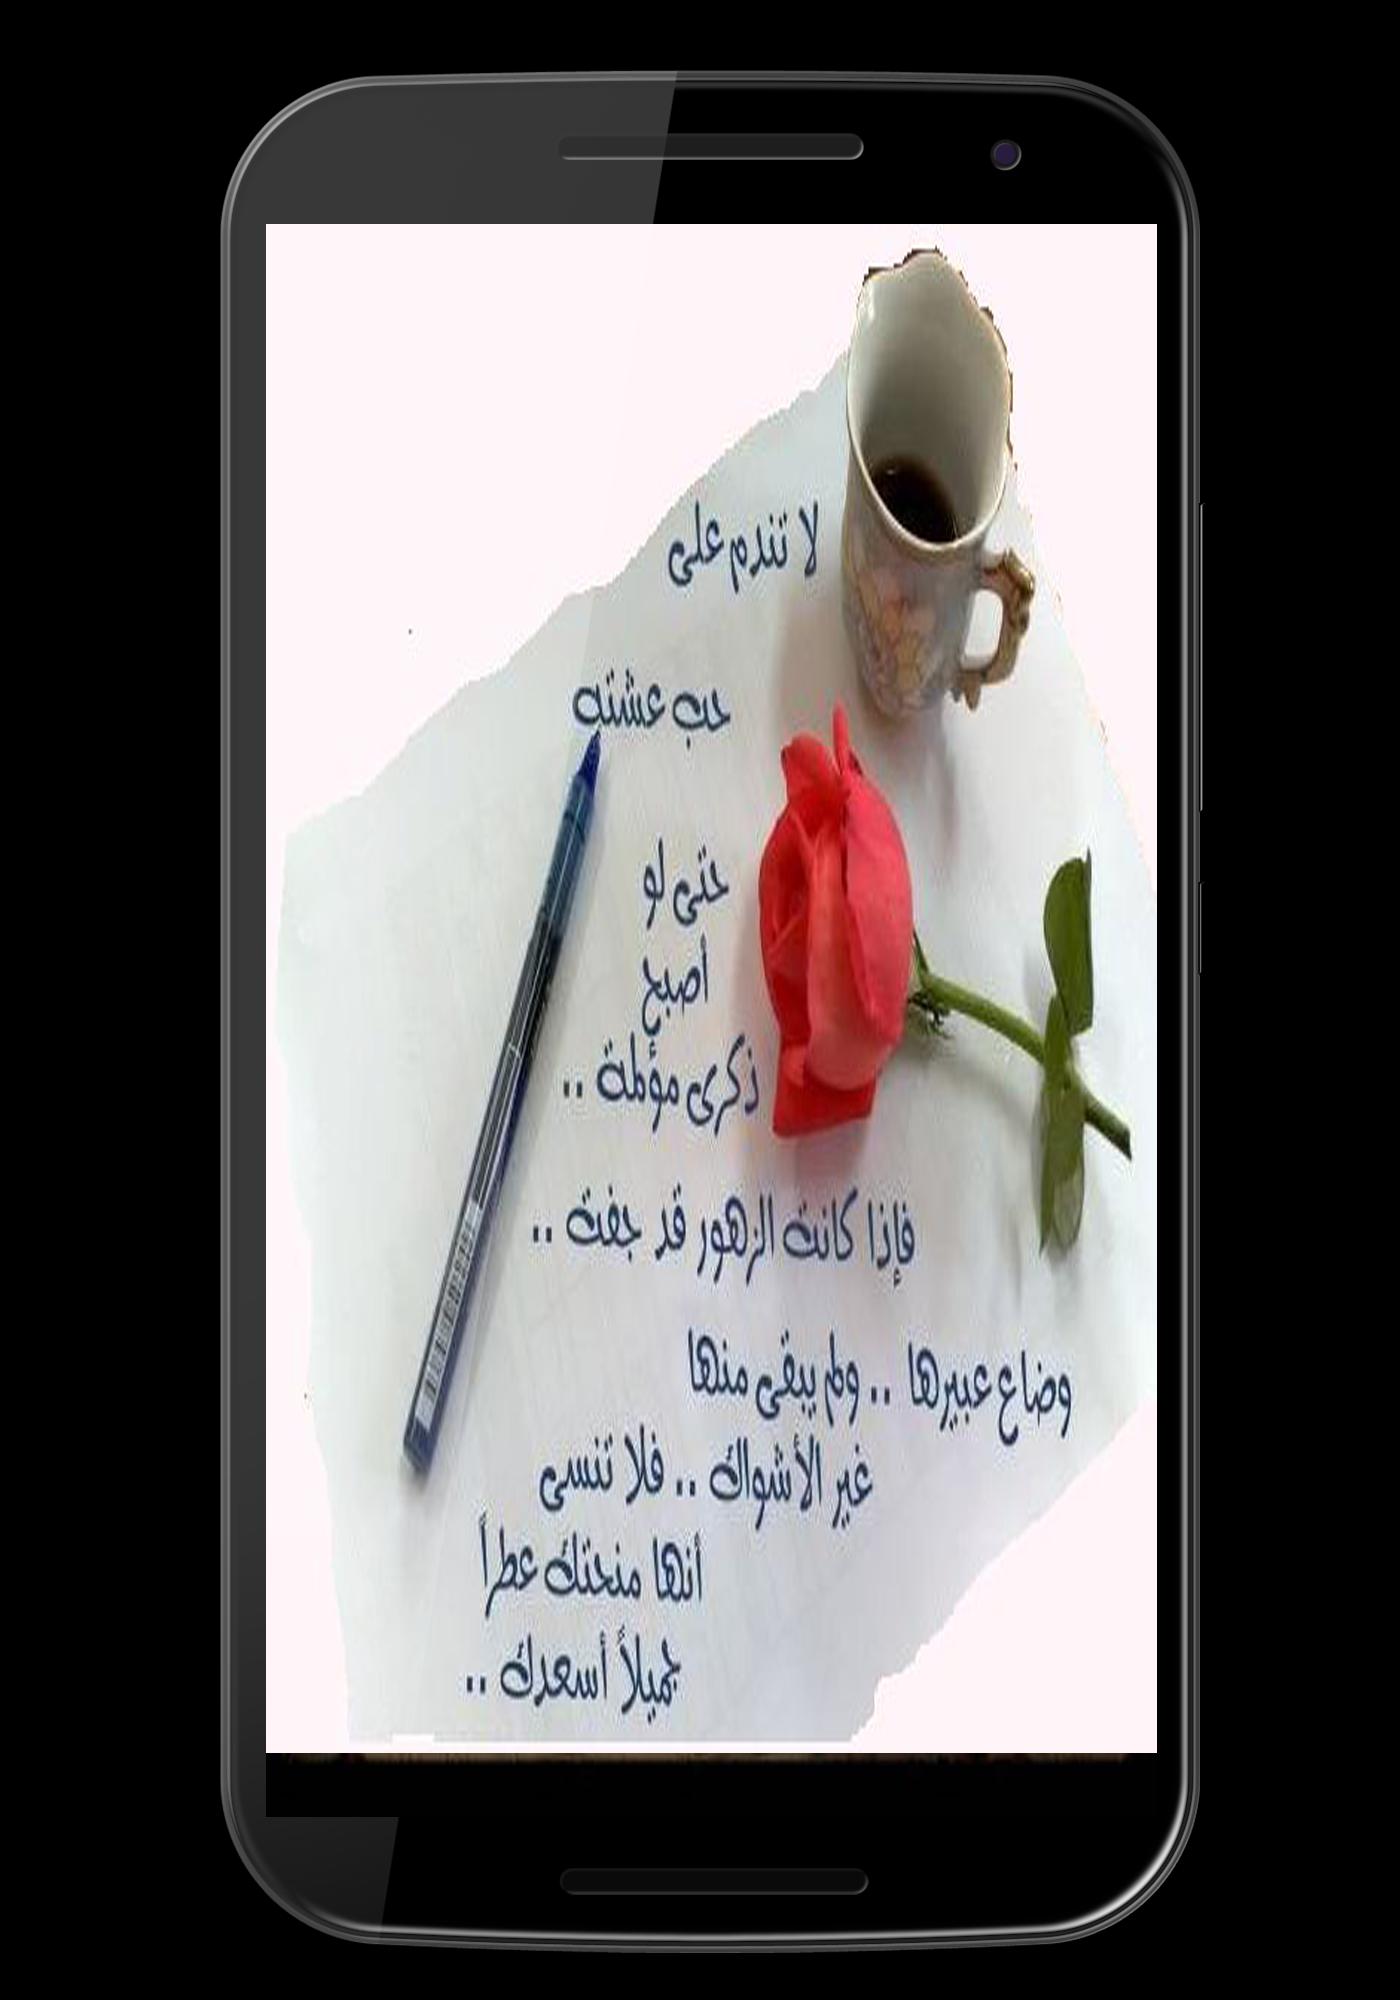 لا تندم على
حب عشته
حتى لو
أصبح
ذكرى مؤلمة ..
فإذا كانت الزهور قد جفت ..
وضاع عبيرها .. ولم يبقى منها
غير الأشواك .. فلا تنسى
أنها منحتك عطراً
جميلاً أسعدك ..